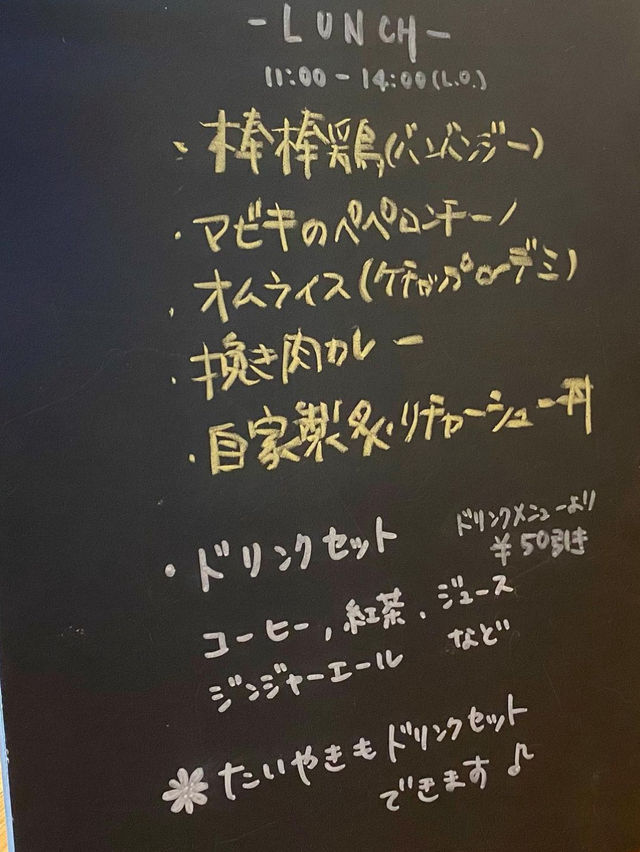 -LUNCH-
11:00-14:00(L.O.)
・棒棒鶏(バンバンジー)
・マビキのペペロンチーノ
・オムライス(ケチャップorデミ)
・挽き肉カレー
・自家製炙りチャーシュー丼
・ドリンクセット
ドリンクメニューより
¥50引き
コーヒー,紅茶,ジュース
ジンジャーエール など
たいやきもドリンクセット
できます♪